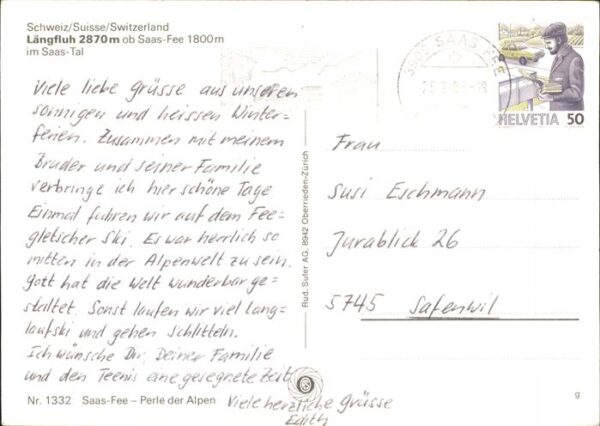 Schweiz/Suisse/Switzerland
Längfluh 2870m ob Saas-Fee 1800m
im Saas-Tal
Viele liebe Grüsse aus unseren
sonnigen und heissen Winter=
ferien. Zusammen mit meinem
Bruder und seiner Familie
verbringe ich hier schöne Tage
Einmal fuhren wir auf dem Fee=
gletscher Ski. Es war herrlich so
mitten in der Alpenwelt zu sein.
Gott hat die Welt wunderbar ge=
staltet. Sonst laufen wir viel Lang=
laufski und gehen Schlitteln.
Ich wünsche Dir, Deiner Familie
und den Teenis eine gesegnete Zeit.
Viele herzliche Grüsse
Edith
Nr. 1332 Saas-Fee – Perle der Alpen
Rud. Suter AG, 8942 Oberrieden-Zürich
SAAS-FEE
HELVETIA 50
Frau
Susi Eschmann
Jurablick 26
5745 Safenwil
g